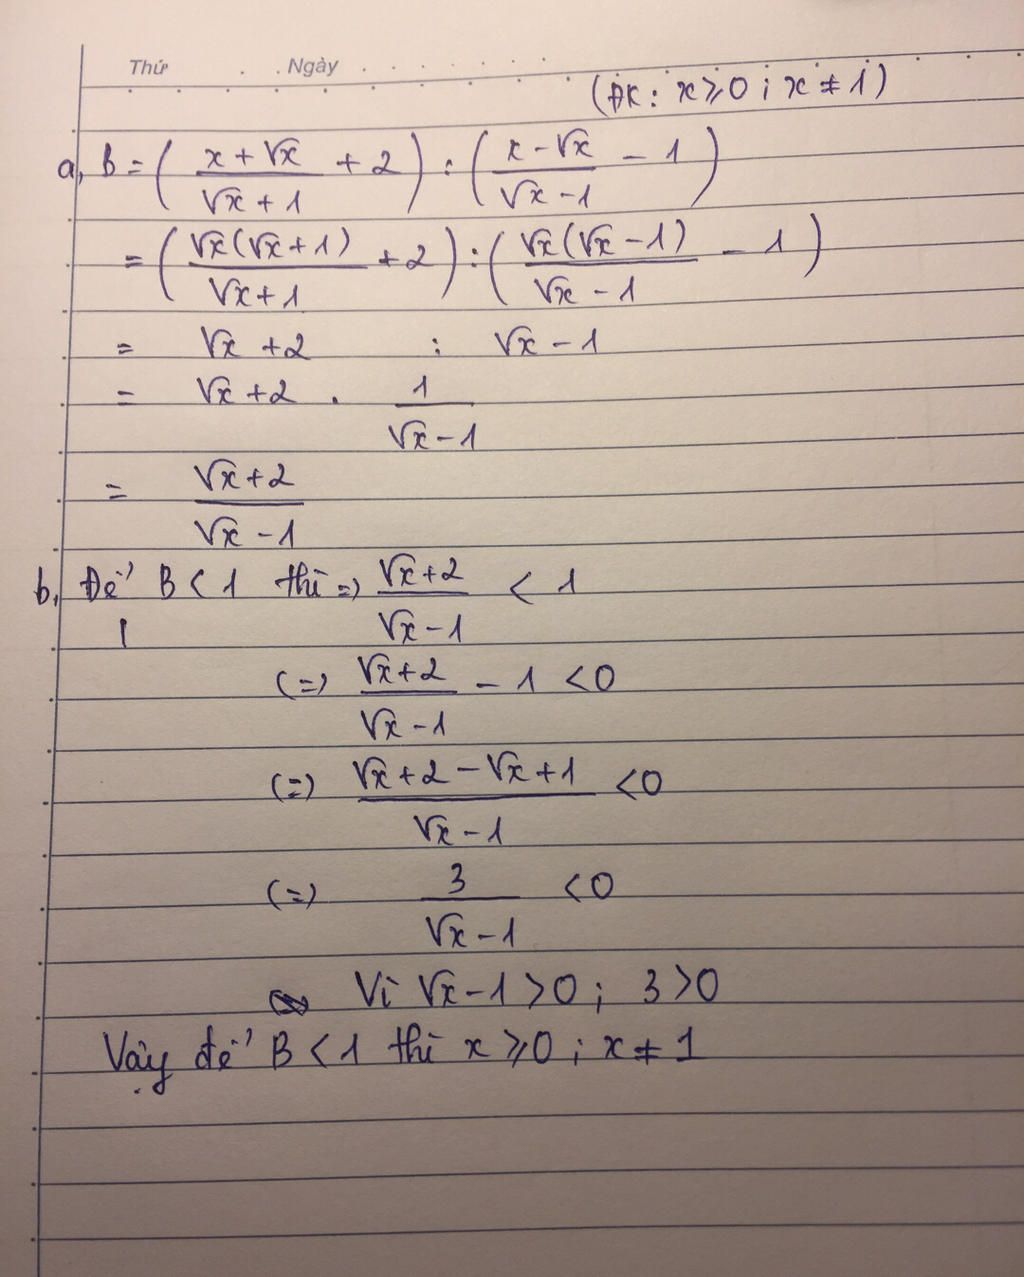 Thứ Ngày
(ĐK: x ≥ 0 ; x ≠ 1)
a, B = ( (x + √x)/(√x + 1) + 2 ) : ( (x - √x)/(√x - 1) - 1 )
= ( √x(√x + 1)/(√x + 1) + 2 ) : ( √x(√x - 1)/(√x - 1) - 1 )
= √x + 2 : √x - 1
= √x + 2 . 1/(√x - 1)
= (√x + 2)/(√x - 1)
b, Để B < 1 thì => (√x + 2)/(√x - 1) < 1
(=) (√x + 2)/(√x - 1) - 1 < 0
(=) (√x + 2 - √x + 1)/(√x - 1) < 0
(=) 3/(√x - 1) < 0
Vì √x - 1 > 0 ; 3 > 0
Vậy để B < 1 thì x ≥ 0 ; x ≠ 1